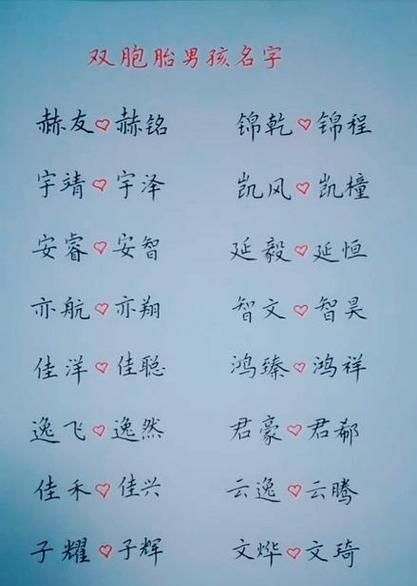 双胞胎男孩名字
赫友♡赫铭 锦乾♡锦程
宇靖♡宇泽 凯风♡凯橦
安睿♡安智 延毅♡延恒
亦航♡亦翔 智文♡智昊
佳洋♡佳聪 鸿臻♡鸿祥
逸飞♡逸然 君豪♡君郗
佳禾♡佳兴 云逸♡云腾
子耀♡子辉 文烨♡文琦